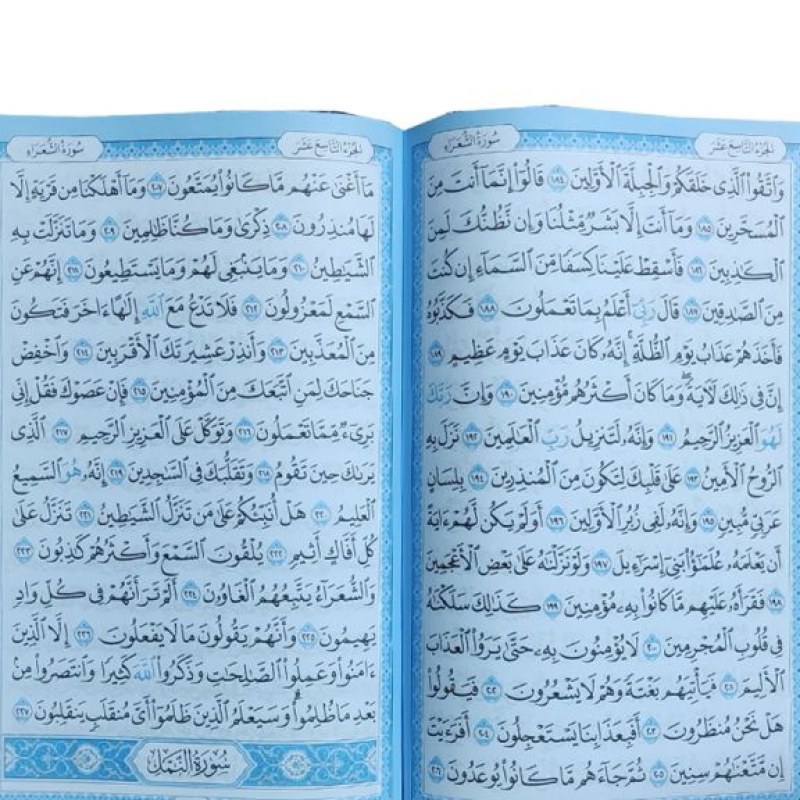 سُورَةُ الشُّعَرَاءِ
الجُزْءُ التَّاسِعَ عَشَرَ
وَٱتَّقُوا۟ ٱلَّذِى خَلَقَكُمْ وَٱلْجِبِلَّةَ ٱلْأَوَّلِينَ ١٨٤ قَالُوٓا۟ إِنَّمَآ أَنتَ مِنَ
ٱلْمُسَحَّرِينَ ١٨٥ وَمَآ أَنتَ إِلَّا بَشَرٌ مِّثْلُنَا وَإِن نَّظُنُّكَ لَمِنَ
ٱلْكَـٰذِبِينَ ١٨٦ فَأَسْقِطْ عَلَيْنَا كِسَفًا مِّنَ ٱلسَّمَآءِ إِن كُنتَ
مِنَ ٱلصَّـٰدِقِينَ ١٨٧ قَالَ رَبِّىٓ أَعْلَمُ بِمَا تَعْمَلُونَ ١٨٨ فَكَذَّبُوهُ
فَأَخَذَهُمْ عَذَابُ يَوْمِ ٱلظُّلَّةِ ۚ إِنَّهُۥ كَانَ عَذَابَ يَوْمٍ عَظِيمٍ ١٨٩
إِنَّ فِى ذَٰلِكَ لَـَٔايَةً ۖ وَمَا كَانَ أَكْثَرُهُم مُّؤْمِنِينَ ١٩٠ وَإِنَّ رَبَّكَ
لَهُوَ ٱلْعَزِيزُ ٱلرَّحِيمُ ١٩١ وَإِنَّهُۥ لَتَنزِيلُ رَبِّ ٱلْعَـٰلَمِينَ ١٩٢ نَزَلَ بِهِ
ٱلرُّوحُ ٱلْأَمِينُ ١٩٣ عَلَىٰ قَلْبِكَ لِتَكُونَ مِنَ ٱلْمُنذِرِينَ ١٩٤ بِلِسَانٍ
عَرَبِىٍّ مُّبِينٍ ١٩٥ وَإِنَّهُۥ لَفِى زُبُرِ ٱلْأَوَّلِينَ ١٩٦ أَوَلَمْ يَكُن لَّهُمْ ءَايَةً
أَن يَعْلَمَهُۥ عُلَمَـٰٓؤُا۟ بَنِىٓ إِسْرَٰٓءِيلَ ١٩٧ وَلَوْ نَزَّلْنَـٰهُ عَلَىٰ بَعْضِ ٱلْأَعْجَمِينَ
١٩٨ فَقَرَأَهُۥ عَلَيْهِم مَّا كَانُوا۟ بِهِۦ مُؤْمِنِينَ ١٩٩ كَذَٰلِكَ سَلَكْنَـٰهُ
فِى قُلُوبِ ٱلْمُجْرِمِينَ ٢٠٠ لَا يُؤْمِنُونَ بِهِۦ حَتَّىٰ يَرَوُا۟ ٱلْعَذَابَ
ٱلْأَلِيمَ ٢٠١ فَيَأْتِيَهُم بَغْتَةً وَهُمْ لَا يَشْعُرُونَ ٢٠٢ فَيَقُولُوا۟
هَلْ نَحْنُ مُنظَرُونَ ٢٠٣ أَفَبِعَذَابِنَا يَسْتَعْجِلُونَ ٢٠٤ أَفَرَءَيْتَ
إِن مَّتَّعْنَـٰهُمْ سِنِينَ ٢٠٥ ثُمَّ جَآءَهُم مَّا كَانُوا۟ يُوعَدُونَ ٢٠٦
سُورَةُ الشُّعَرَاءِ
الجُزْءُ التَّاسِعَ عَشَرَ
مَآ أَغْنَىٰ عَنْهُم مَّا كَانُوا۟ يُمَتَّعُونَ ٢٠٧ وَمَآ أَهْلَكْنَا مِن قَرْيَةٍ إِلَّا
لَهَا مُنذِرُونَ ٢٠٨ ذِكْرَىٰ وَمَا كُنَّا ظَـٰلِمِينَ ٢٠٩ وَمَا تَنَزَّلَتْ بِهِ
ٱلشَّيَـٰطِينُ ٢١٠ وَمَا يَنۢبَغِى لَهُمْ وَمَا يَسْتَطِيعُونَ ٢١١ إِنَّهُمْ عَنِ
ٱلسَّمْعِ لَمَعْزُولُونَ ٢١٢ فَلَا تَدْعُ مَعَ ٱللَّهِ إِلَـٰهًا ءَاخَرَ فَتَكُونَ
مِنَ ٱلْمُعَذَّبِينَ ٢١٣ وَأَنذِرْ عَشِيرَتَكَ ٱلْأَقْرَبِينَ ٢١٤ وَٱخْفِضْ
جَنَاحَكَ لِمَنِ ٱتَّبَعَكَ مِنَ ٱلْمُؤْمِنِينَ ٢١٥ فَإِنْ عَصَوْكَ فَقُلْ إِنِّى
بَرِىٓءٌ مِّمَّا تَعْمَلُونَ ٢١٦ وَتَوَكَّلْ عَلَى ٱلْعَزِيزِ ٱلرَّحِيمِ ٢١٧ ٱلَّذِى
يَرَىٰكَ حِينَ تَقُومُ ٢١٨ وَتَقَلُّبَكَ فِى ٱلسَّـٰجِدِينَ ٢١٩ إِنَّهُۥ هُوَ ٱلسَّمِيعُ
ٱلْعَلِيمُ ٢٢٠ هَلْ أُنَبِّئُكُمْ عَلَىٰ مَن تَنَزَّلُ ٱلشَّيَـٰطِينُ ٢٢١ تَنَزَّلُ عَلَىٰ
كُلِّ أَفَّاكٍ أَثِيمٍ ٢٢٢ يُلْقُونَ ٱلسَّمْعَ وَأَكْثَرُهُمْ كَـٰذِبُونَ ٢٢٣
وَٱلشُّعَرَآءُ يَتَّبِعُهُمُ ٱلْغَاوُۥنَ ٢٢٤ أَلَمْ تَرَ أَنَّهُمْ فِى كُلِّ وَادٍ
يَهِيمُونَ ٢٢٥ وَأَنَّهُمْ يَقُولُونَ مَا لَا يَفْعَلُونَ ٢٢٦ إِلَّا ٱلَّذِينَ
ءَامَنُوا۟ وَعَمِلُوا۟ ٱلصَّـٰلِحَـٰتِ وَذَكَرُوا۟ ٱللَّهَ كَثِيرًا وَٱنتَصَرُوا۟ مِنۢ
بَعْدِ مَا ظُلِمُوا۟ ۗ وَسَيَعْلَمُ ٱلَّذِينَ ظَلَمُوٓا۟ أَىَّ مُنقَلَبٍ يَنقَلِبُونَ ٢٢٧
سُورَةُ النَّمْلِ